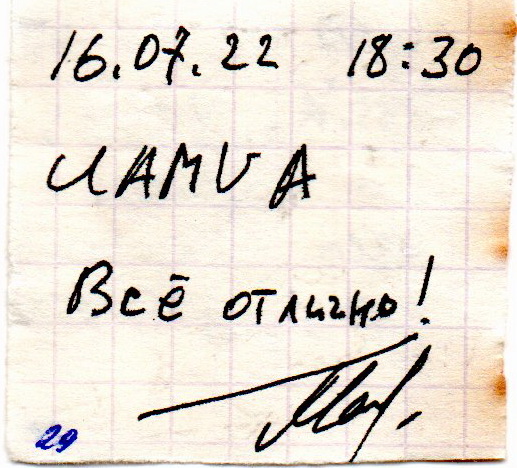 16.07.22 18:30
ИАМИА
Всё отлично!
29